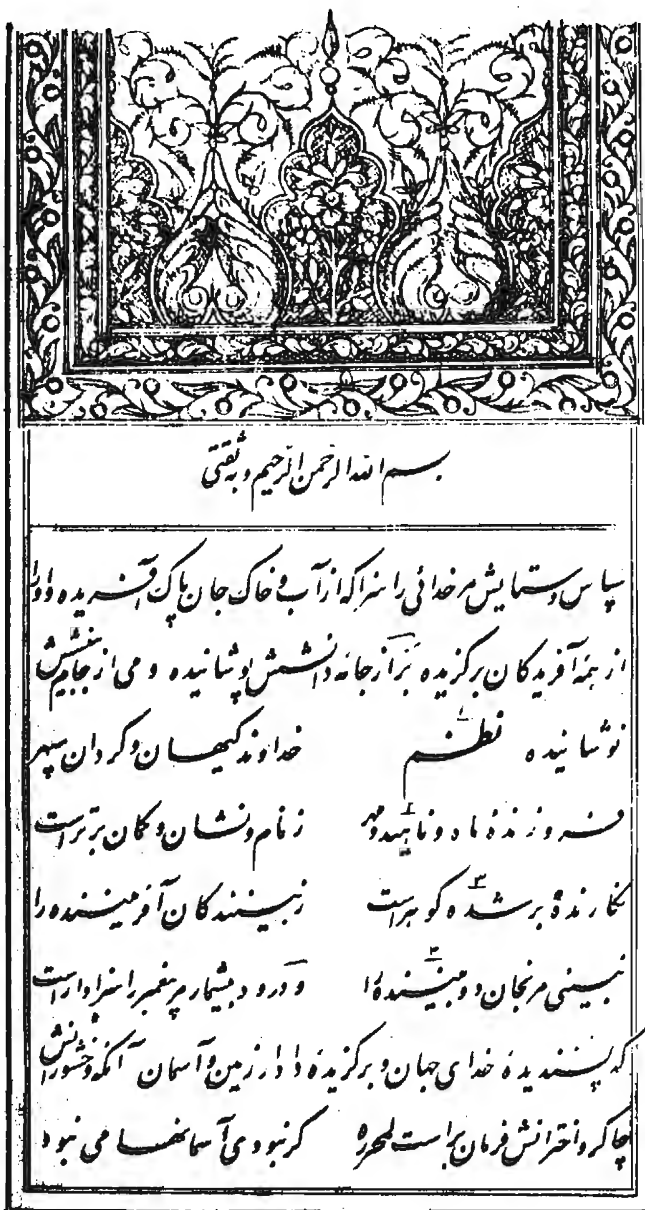 بسم الله الرحمن الرحیم و به ثقتی
سپاس و ستایش مر خدائی را سزا که از آب و خاک جان پاک آفریده و او را
از همه آفریدگان برگزیده بر از جامه دانشش پوشانیده و می از جام بینشش
نوشانیده نظم خداوند کیهان و کردان سپهر
فروزندۀ ماه و ناهید و مهر ز نام و نشان و کمان برتر است
نکارندۀ بر شده کوهر است ز بینندکان آفریننده را
نبینی مرنجان دو بیننده را و درود بیشمار مر پیغمبر را سزاوار است
که پسندیدۀ خدای جهان و برکزیدۀ دادار زمین و آسمان آنکه وخشورانش
چاکر و اخترانش فرمان بر است لمحرره کر نبودی آسمانها می نبود